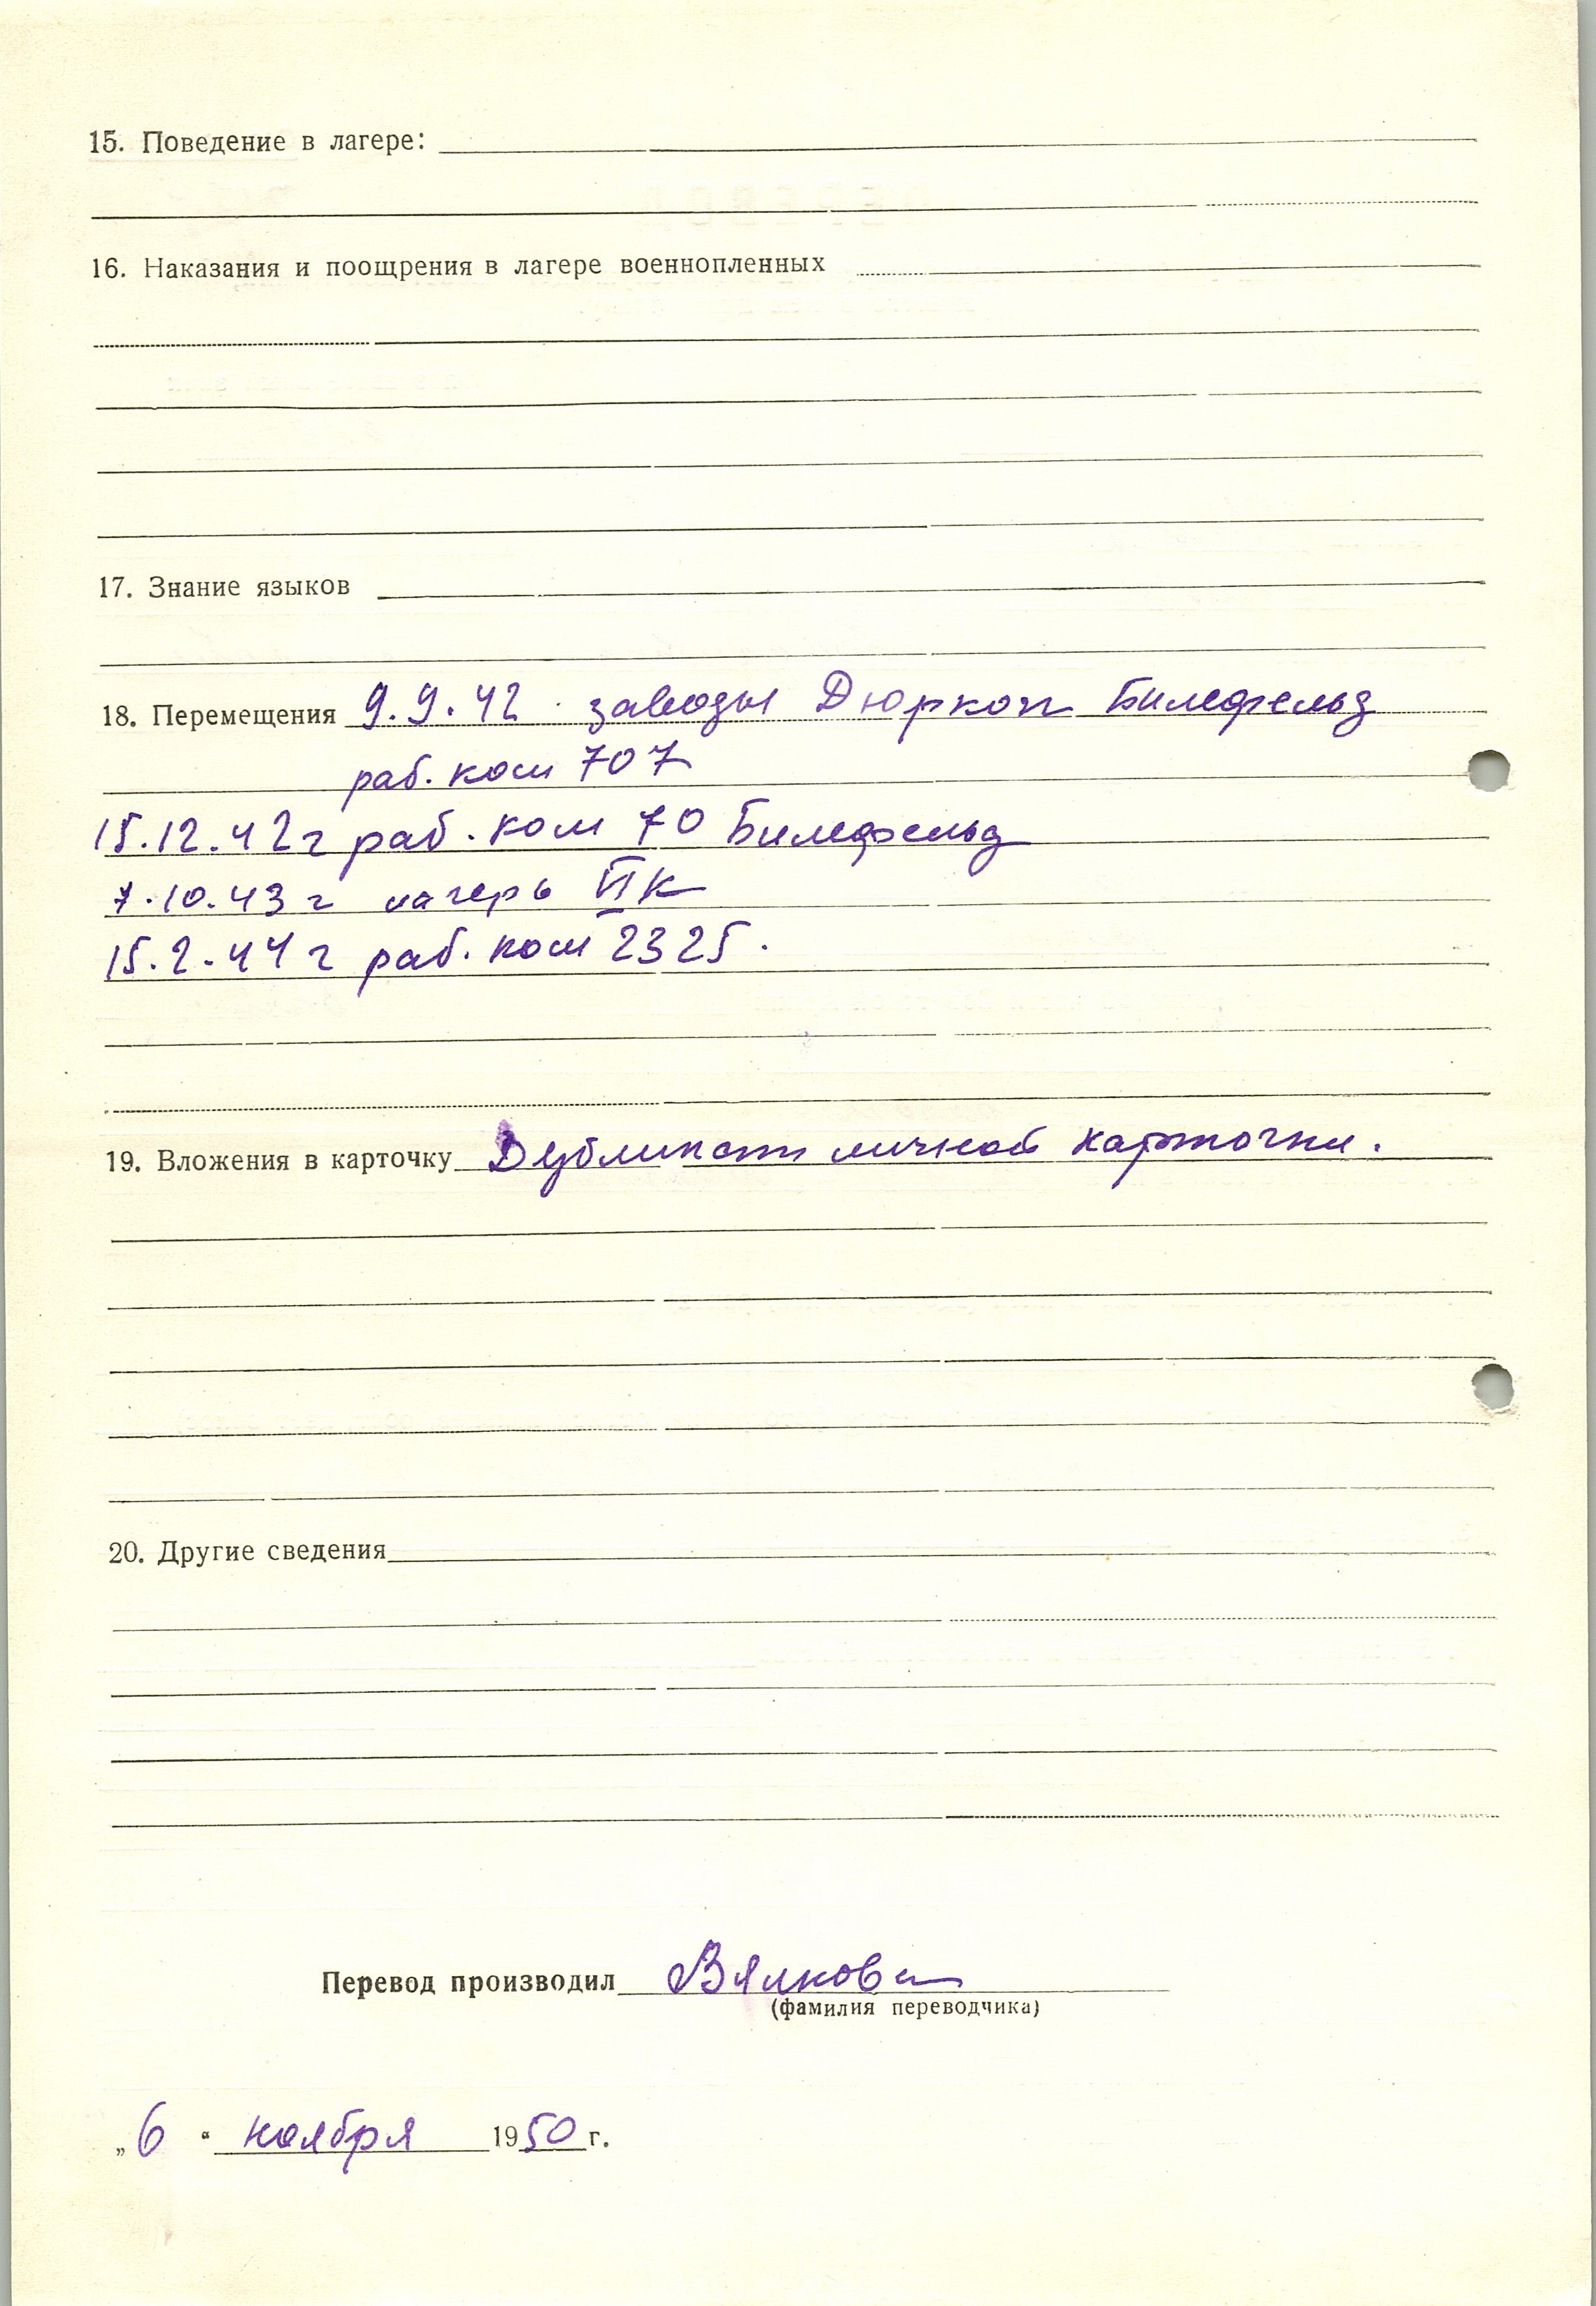 15. Поведение в лагере:
16. Наказания и поощрения в лагере военнопленных
17. Знание языков
18. Перемещения 9.9.42 заводы Дюркоп Билефельд
раб. ком 707
15.12.42 г раб. ком 70 Билефельд
7.10.43 г лагерь VI K
15.2.44 г раб. ком 2325.
19. Вложения в карточку Дубликат личной карточки.
20. Другие сведения
Перевод производил Вялкова
(фамилия переводчика)
„6“ ноября 1950 г.